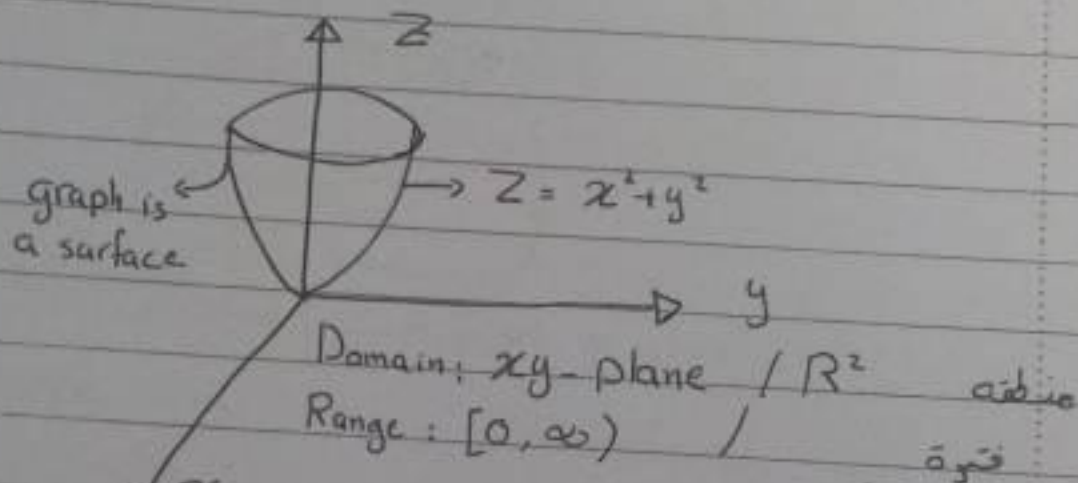 Z
graph is
a surface
Z = x²+y²
y
Domain: xy-plane / R² منطقة
Range: [0, ∞) / فترة